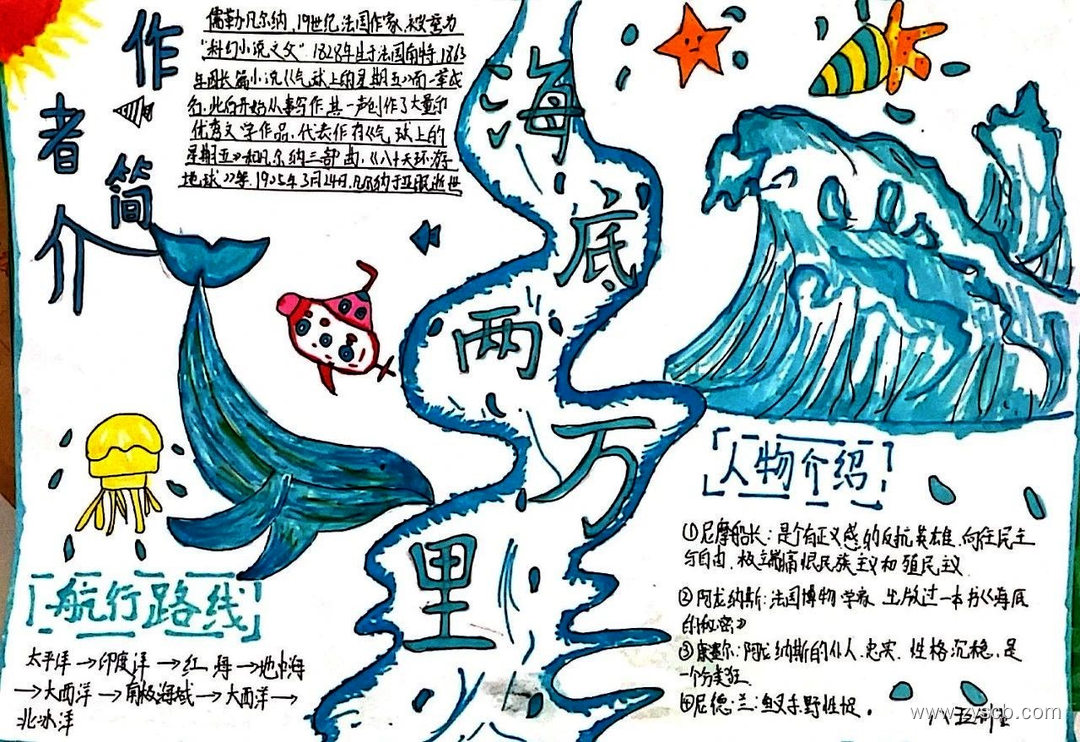 作者简介
儒勒·凡尔纳，19世纪法国作家，被誉为
"科幻小说之父"1828年生于法国南特，1863
年因长篇小说《气球上的星期五》而一举成
此后开始从事写作，其一声创作了大量和
优秀文学作品，代表作有《气球上的
星期五》和凡尔纳三部曲，《八十天环游
地球》等，1905年3月24日，凡尔纳于亚眠逝世
海底两万里
人物介绍
①尼摩船长：是个有正义感的反抗英雄，向往民主
与自由，极端痛恨民族主义和殖民主义
②阿龙纳斯：法国博物学家，出版过一本书《海底
的秘密》
③康塞尔：阿龙纳斯的仆人，忠实，性格沉稳，是
一个分类狂
④尼德·兰：鱼叉手，野性
航行路线
太平洋→印度洋→红海→地中海
→大西洋→南极海域→大西洋→
北冰洋
www.zyscb.com